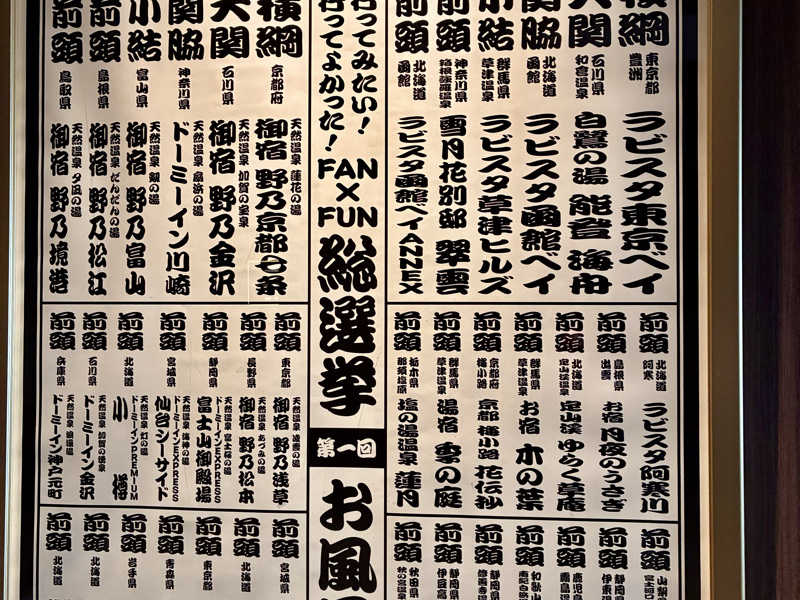 横綱
東京都
豊洲
ラビスタ東京ベイ
大関
石川県
和倉温泉
白鷺の湯 能登 海舟
関脇
北海道
函館
ラビスタ函館ベイ
小結
群馬県
草津温泉
ラビスタ草津ヒルズ
前頭
神奈川県
箱根強羅温泉
雪月花別邸 翠雲
前頭
北海道
函館
ラビスタ函館ベイANNEX
前頭
北海道
阿寒
ラビスタ阿寒川
前頭
島根県
出雲
お宿 月夜のうさぎ
前頭
北海道
定山渓温泉
定山渓 ゆらく草庵
前頭
群馬県
草津温泉
お宿 木の葉
前頭
京都府
梅小路
京都 梅小路 花伝抄
前頭
群馬県
草津温泉
湯宿 季の庭
前頭
栃木県
那須塩原
塩の湯温泉 蓮月
前頭
山梨
前頭
静岡県
伊東温
前頭
鹿児島
霧島温
前頭
和歌山
前頭
静岡県
修善寺温
前頭
静岡県
伊豆高
前頭
秋田県
秋の宮温泉
行ってみたい！
行ってよかった！
FAN×FUN
総選挙
第一回
お風
横綱
京都府
天然温泉 蓮花の湯
御宿 野乃京都七条
大関
石川県
天然温泉 加賀の宝泉
御宿 野乃金沢
関脇
神奈川県
天然温泉 扇浜の湯
ドーミーイン川崎
小結
富山県
天然温泉 剱の湯
御宿 野乃富山
前頭
島根県
天然温泉 だんだんの湯
御宿 野乃松江
前頭
鳥取県
天然温泉 夕凪の湯
御宿 野乃境港
前頭
東京都
天然温泉 凌雲の湯
御宿 野乃浅草
前頭
長野県
天然温泉 あづみの湯
御宿 野乃松本
前頭
静岡県
天然温泉 富士桜の湯
ドーミーインEXPRESS
富士山御殿場
前頭
宮城県
天然温泉 海神の湯
ドーミーインEXPRESS
仙台シーサイド
前頭
北海道
天然温泉 灯の湯
ドーミーインPREMIUM
小樽
前頭
石川県
天然温泉 加賀の湧泉
ドーミーイン金沢
前頭
兵庫県
天然温泉 浪漫湯
ドーミーイン神戸元町
前頭
宮城県
前頭
北海道
前頭
東京都
前頭
青森県
前頭
岩手県
前頭
北海道
前頭
北海道